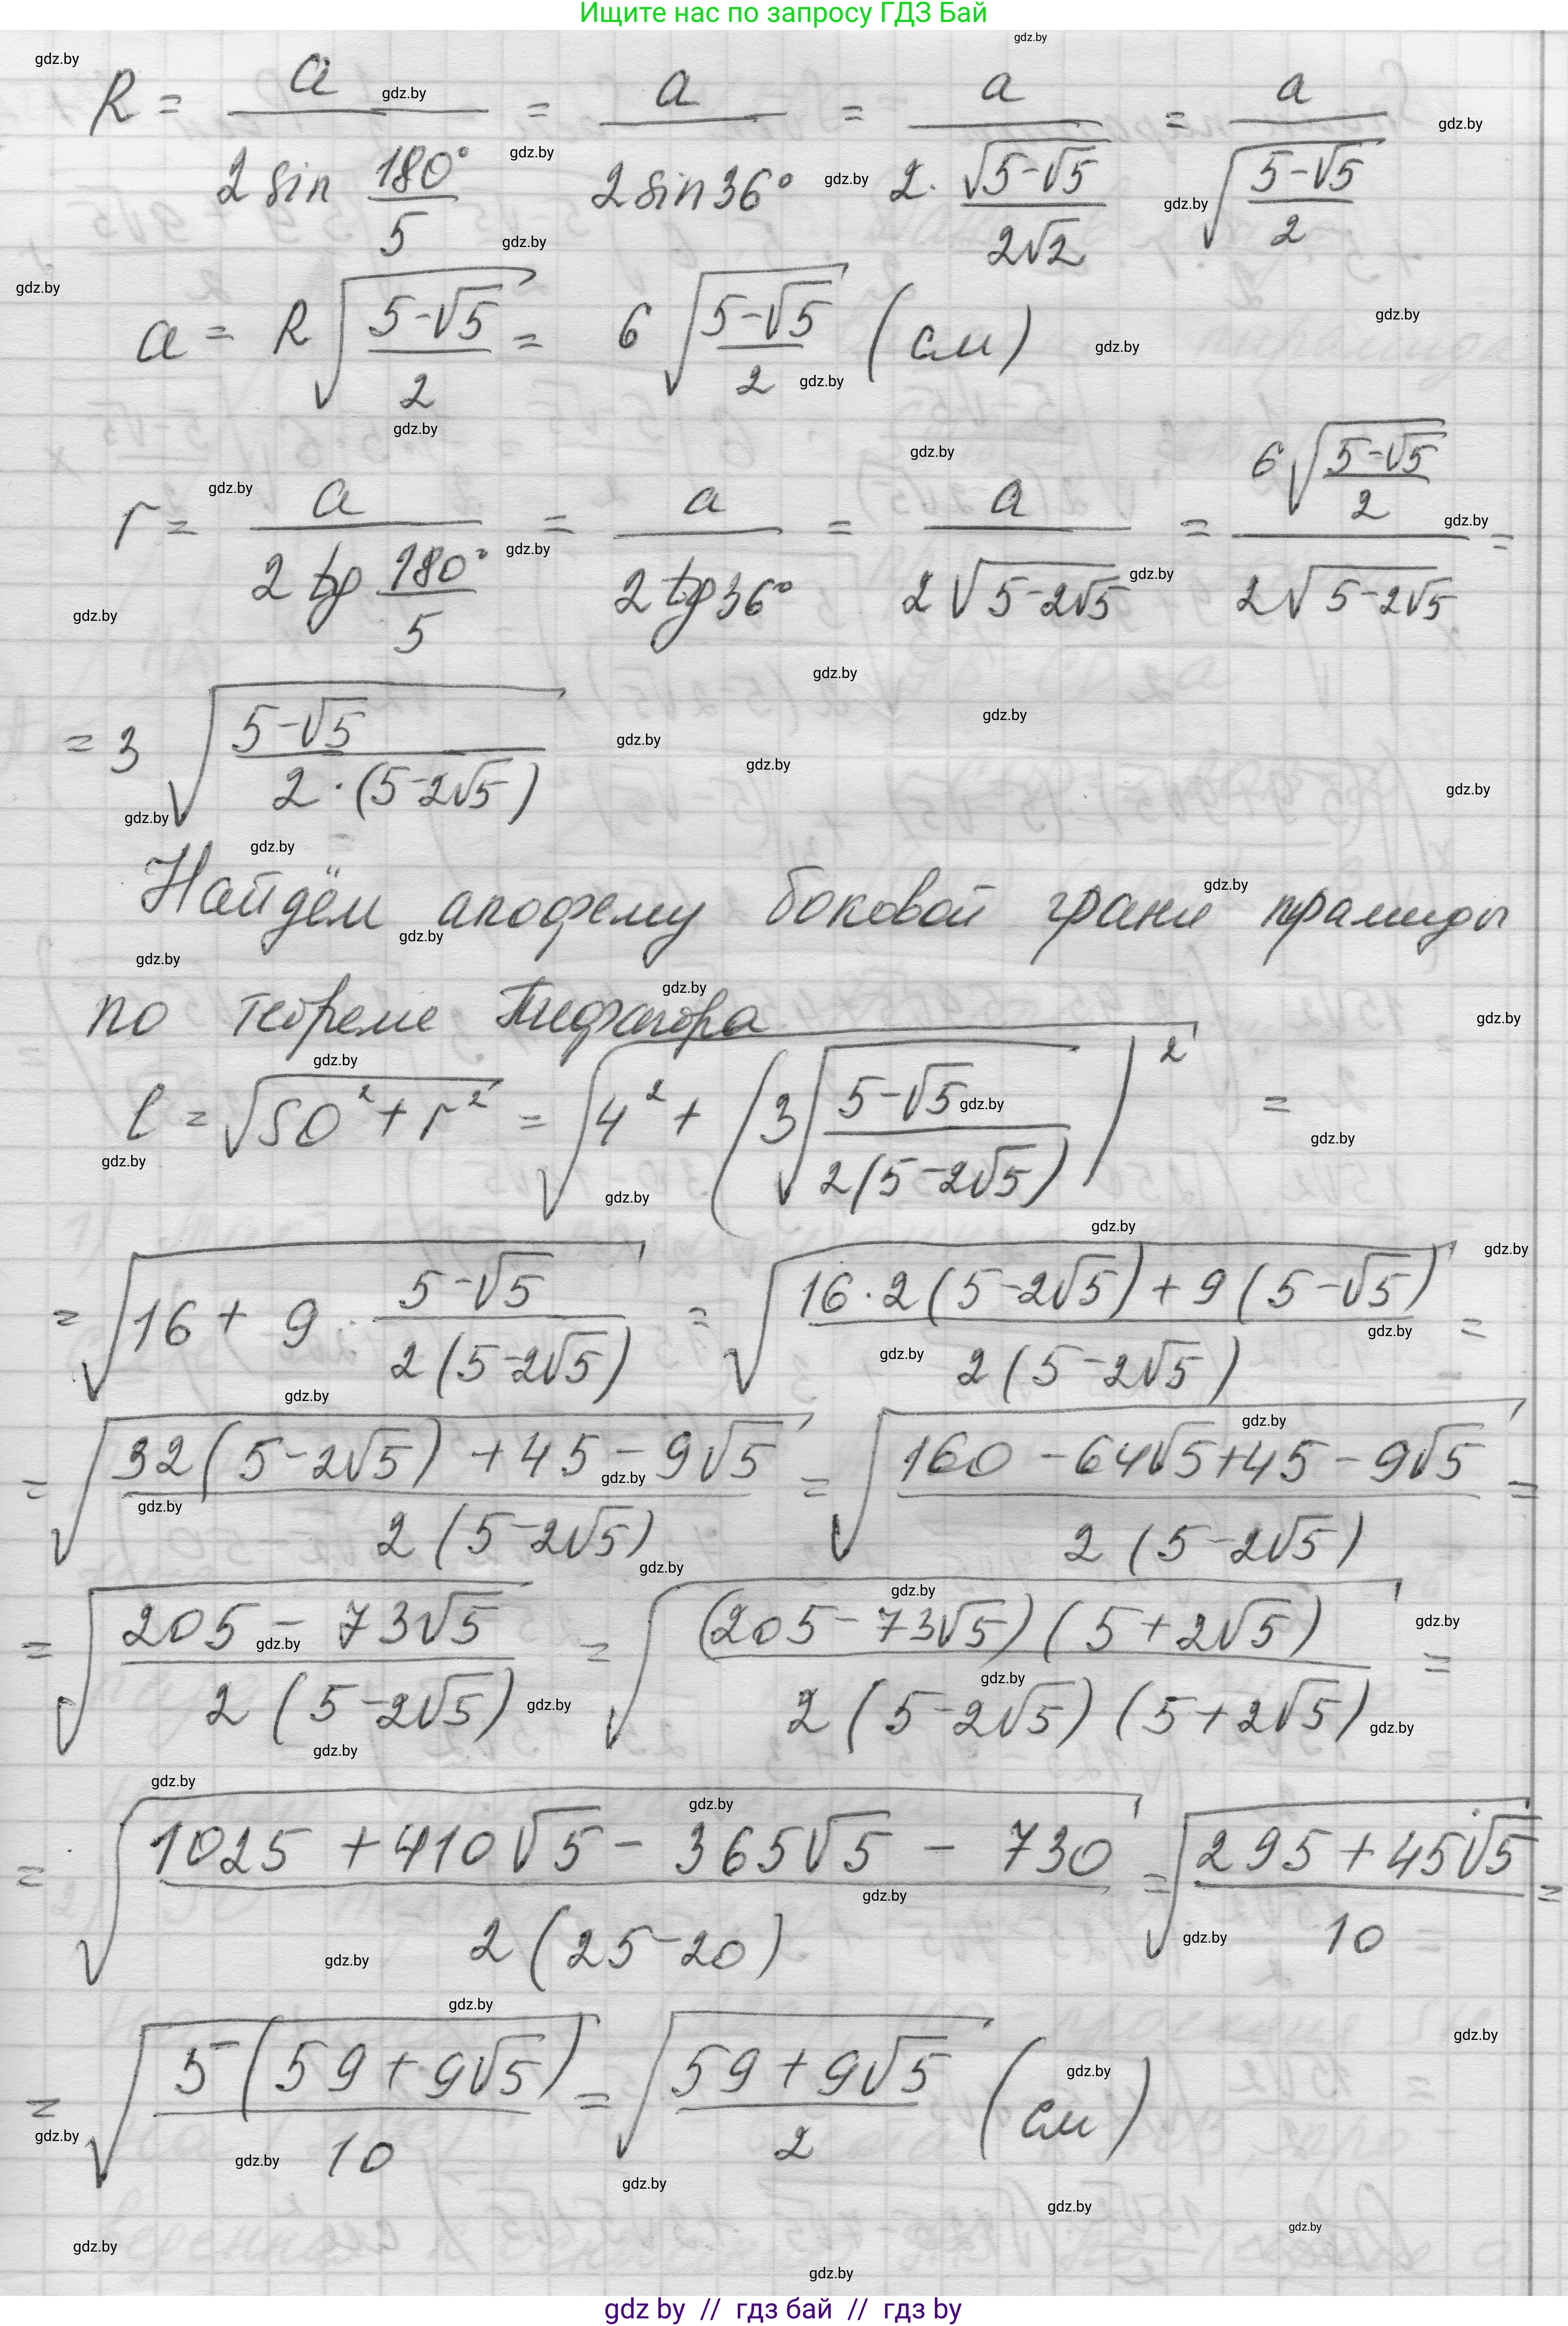 Ищите нас по запросу ГДЗ Бай
R = a / (2 sin 180°/5) = a / (2 sin 36°) = a / (2 · √(5-√5) / (2√2)) = a / √((5-√5)/2)
a = R √((5-√5)/2) = 6 √((5-√5)/2) (см)
r = a / (2 tg 180°/5) = a / (2 tg 36°) = a / (2√(5-2√5)) = 6√((5-√5)/2) / (2√(5-2√5)) =
= 3 √((5-√5) / (2·(5-2√5)))
Найдём апофему боковой грани пирамиды
по теореме Пифагора
l = √(SO² + r²) = √(4² + (3√((5-√5) / (2(5-2√5))))²) =
= √(16 + 9 · (5-√5) / (2(5-2√5))) = √((16·2(5-2√5) + 9(5-√5)) / (2(5-2√5))) =
= √((32(5-2√5) + 45 - 9√5) / (2(5-2√5))) = √((160 - 64√5 + 45 - 9√5) / (2(5-2√5))) =
= √((205 - 73√5) / (2(5-2√5))) = √((205 - 73√5)(5+2√5) / (2(5-2√5)(5+2√5))) =
= √((1025 + 410√5 - 365√5 - 730) / (2(25-20))) = √((295 + 45√5) / 10) =
= √(5(59 + 9√5) / 10) = √((59 + 9√5) / 2) (см)
gdz by // гдз бай // гдз by